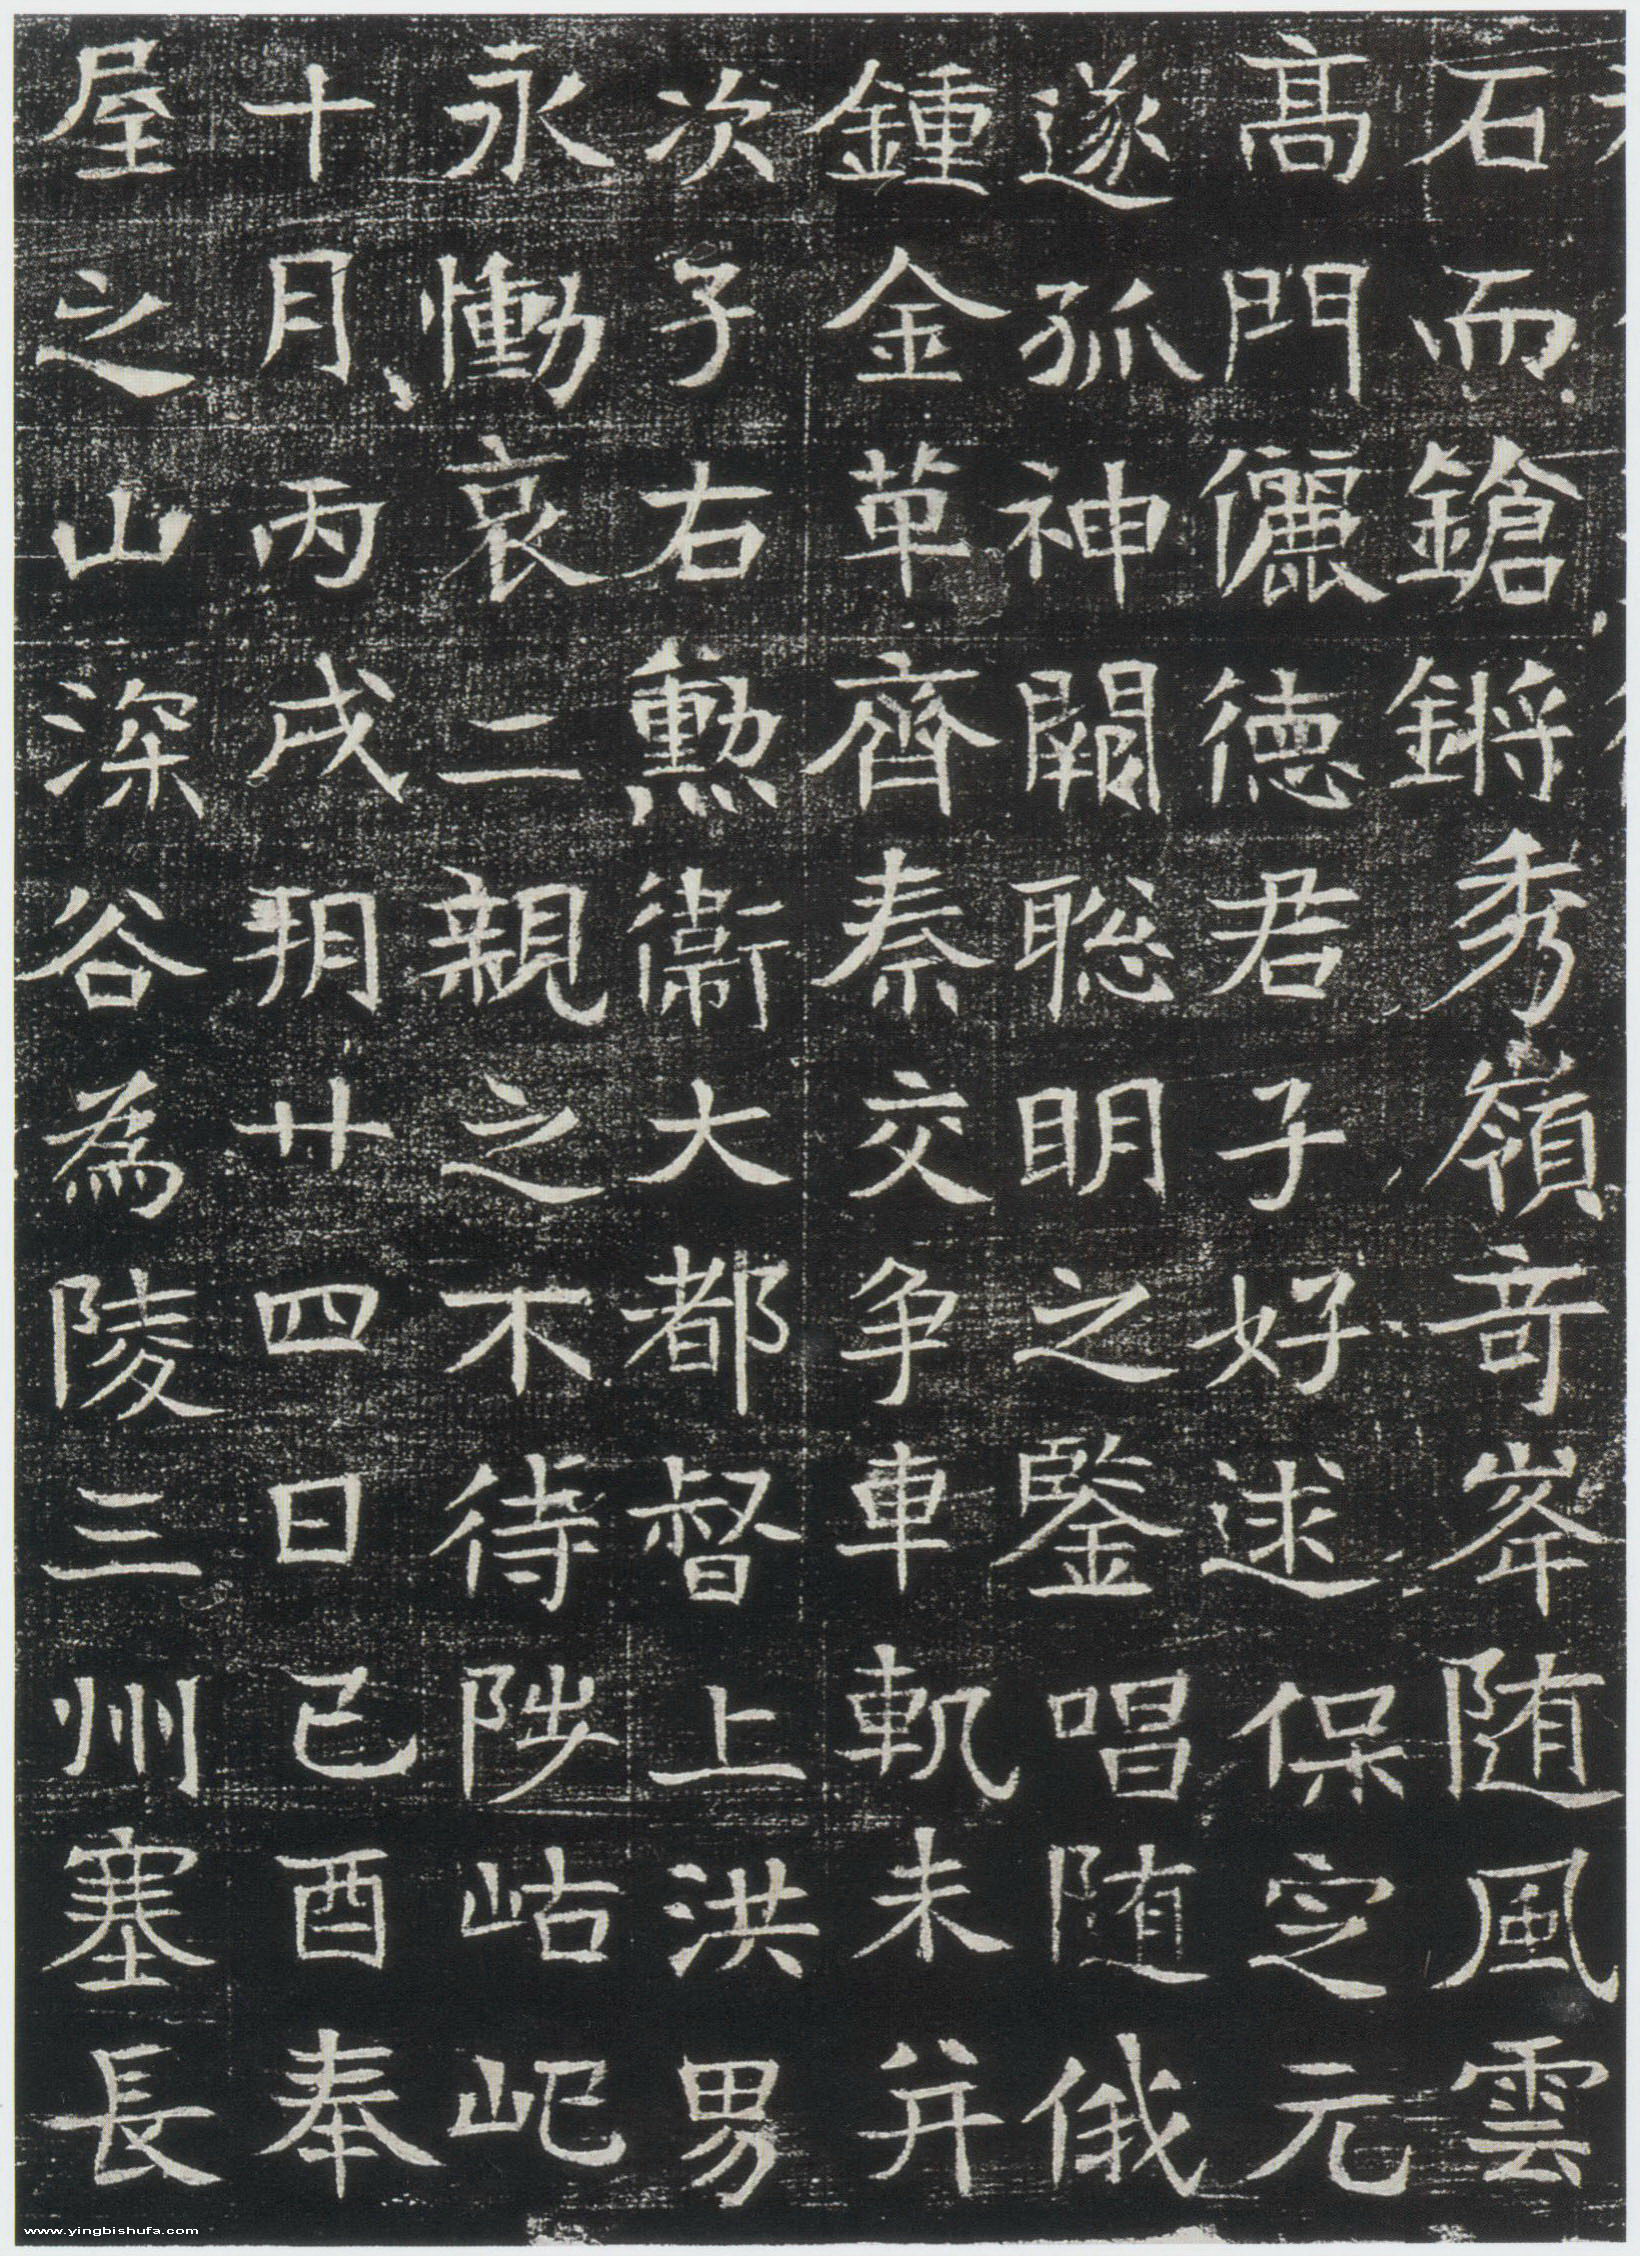 石而鎗鏘秀嶺竒峯随風雲
髙門儷德君子好逑保定元
遂孤神闕聡明之鑒唱随俄
鍾金革齊秦交争車軌未并
次子右勲衛大都督上洪男
永慟哀二親之不待陟岵屺
十月丙戌玥廿四日己酉奉
屋之山深谷為陵三州塞長
www.yingbishufa.com